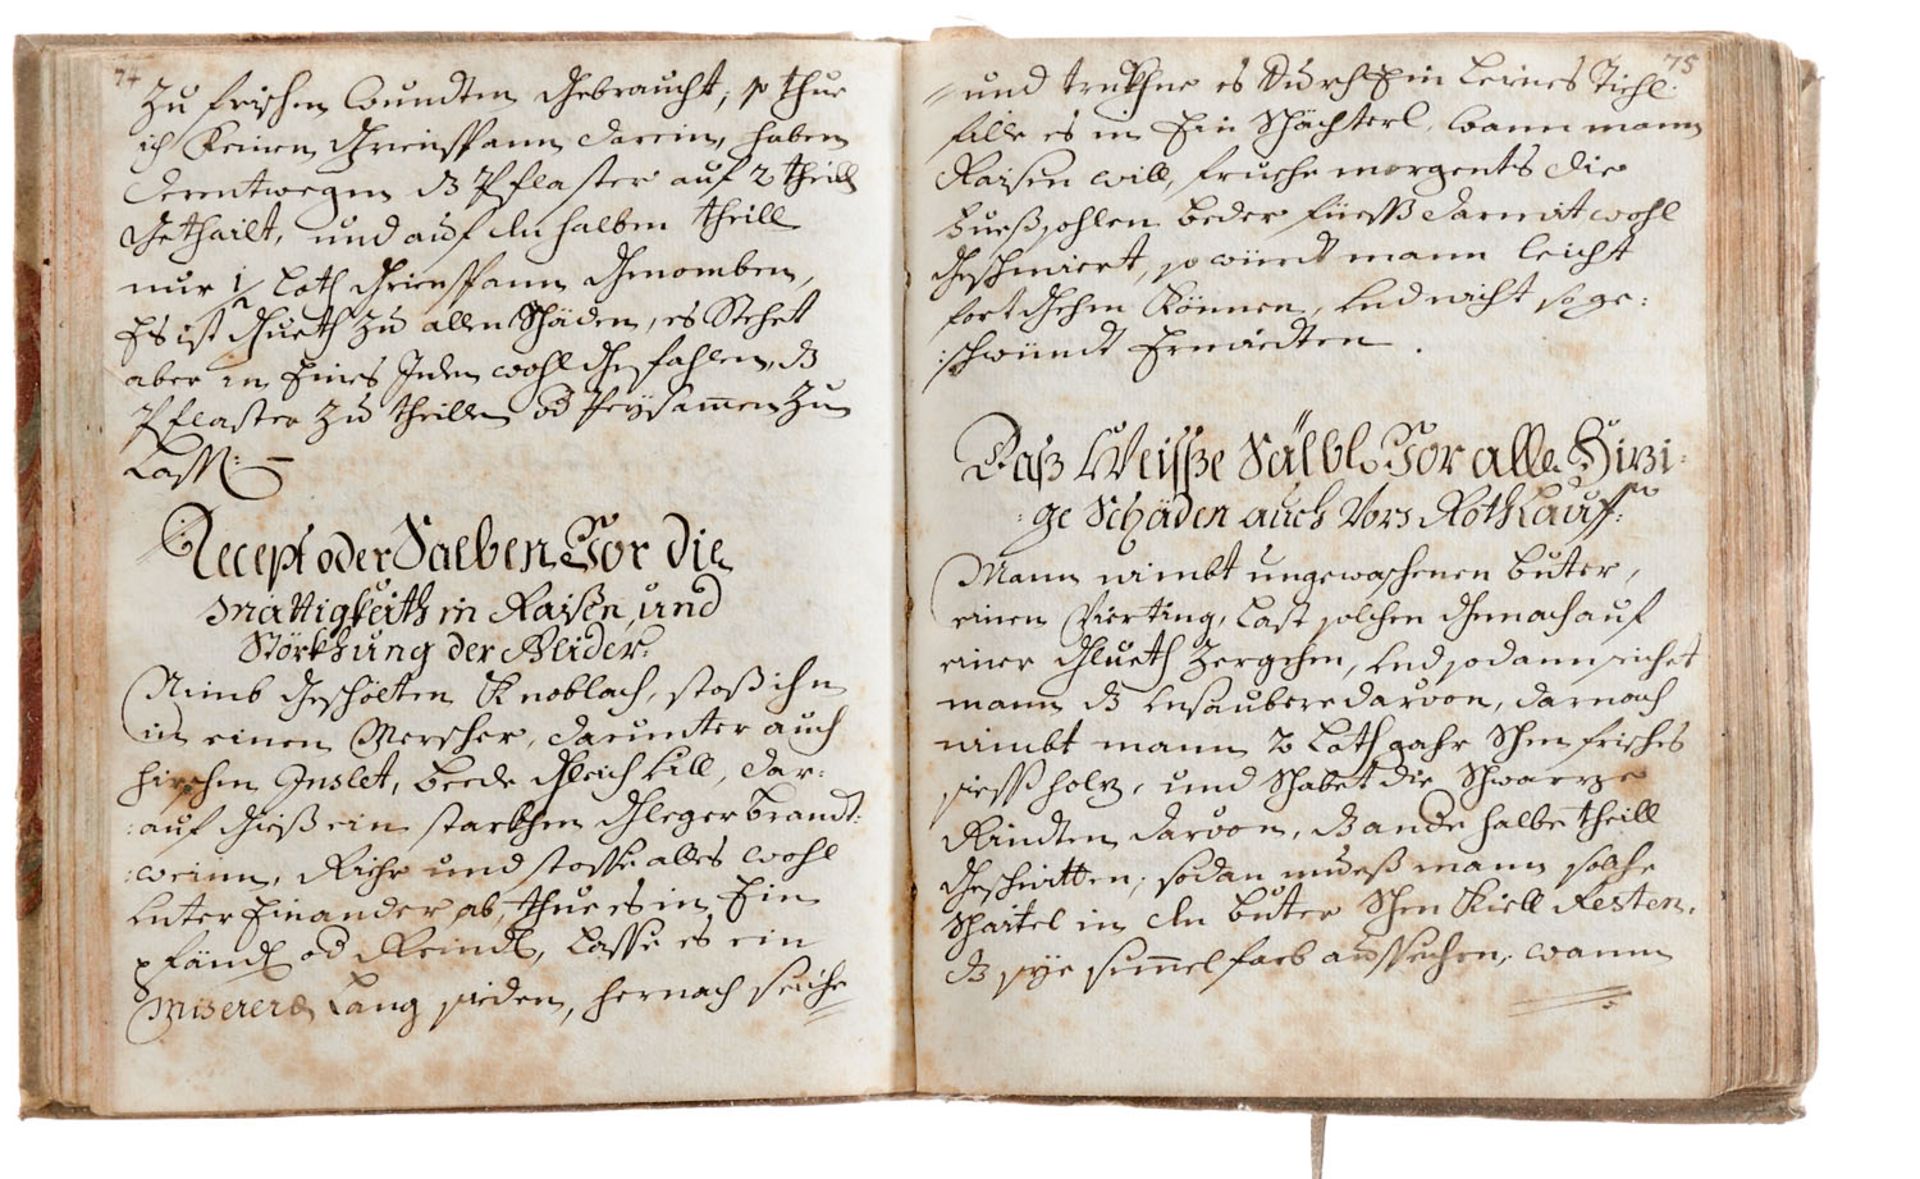 74
Zu frischen Wundten Gebraucht, so thue
ich Keinen Grienspann darein, haben
derentwegen dz Pflaster auf 2 theill
Gethailt, und auf den halben theill
nur 1/2 Loth Grienspann Genomben,
Es ist Gueth Zu allen Schäden, es Stehet
aber in Eines Jeden wohl Gefahlen, dz
Pflaster Zu theillen od Peysamen Zu
Lassen: —
Recept oder Salben Vor die
Mattigkeith in Raisen, und
Störkhung der Glider:
Nimb Geschölten Knoblach, stoß ihn
in einen Merscher, darunter auch
hirschen Inslet, beede Gleich Vill, dar:
:auf Gieß ein starkhen Gleger brandt:
:weinn, Riehr und stosse alles wohl
Unter Einander ab, thue es in Ein
pfändl od Reindl, Lasse es ein
Miserere Lang sieden, hernach seiche
75
und trukhne es Durch Ein Leines Tiehl.
fille es in Ein Schächterl, Wann mann
Raisen will, fruehe morgents die
Fueßsohlen beder füeß darmit wohl
Geschmiert, so würdt mann leicht
fort Gehen Können, Und nicht so ge:
:schwündt Ermiedten.
Daß Weisse Sälbl Vor alle Hizi:
:ge Schäden auch Vors Rothlauff:
Mann nimbt ungewaschenen buter,
einen Vierting, Last solchen Gemach auf
einer Glueth Zergehen, Und sodann seichet
mann dz Unsaubere darvon, darnach
nimbt mann 2 Loth gahr Schen frisches
siessholz, und Schabet die Schwarze
Rindten darvon, Banden halbe theill
Geschnitten, sodan mueß mann solche
Schaitel in den buter Schen Kiell Resten,
dz sye simmelfarb aussechen, wann